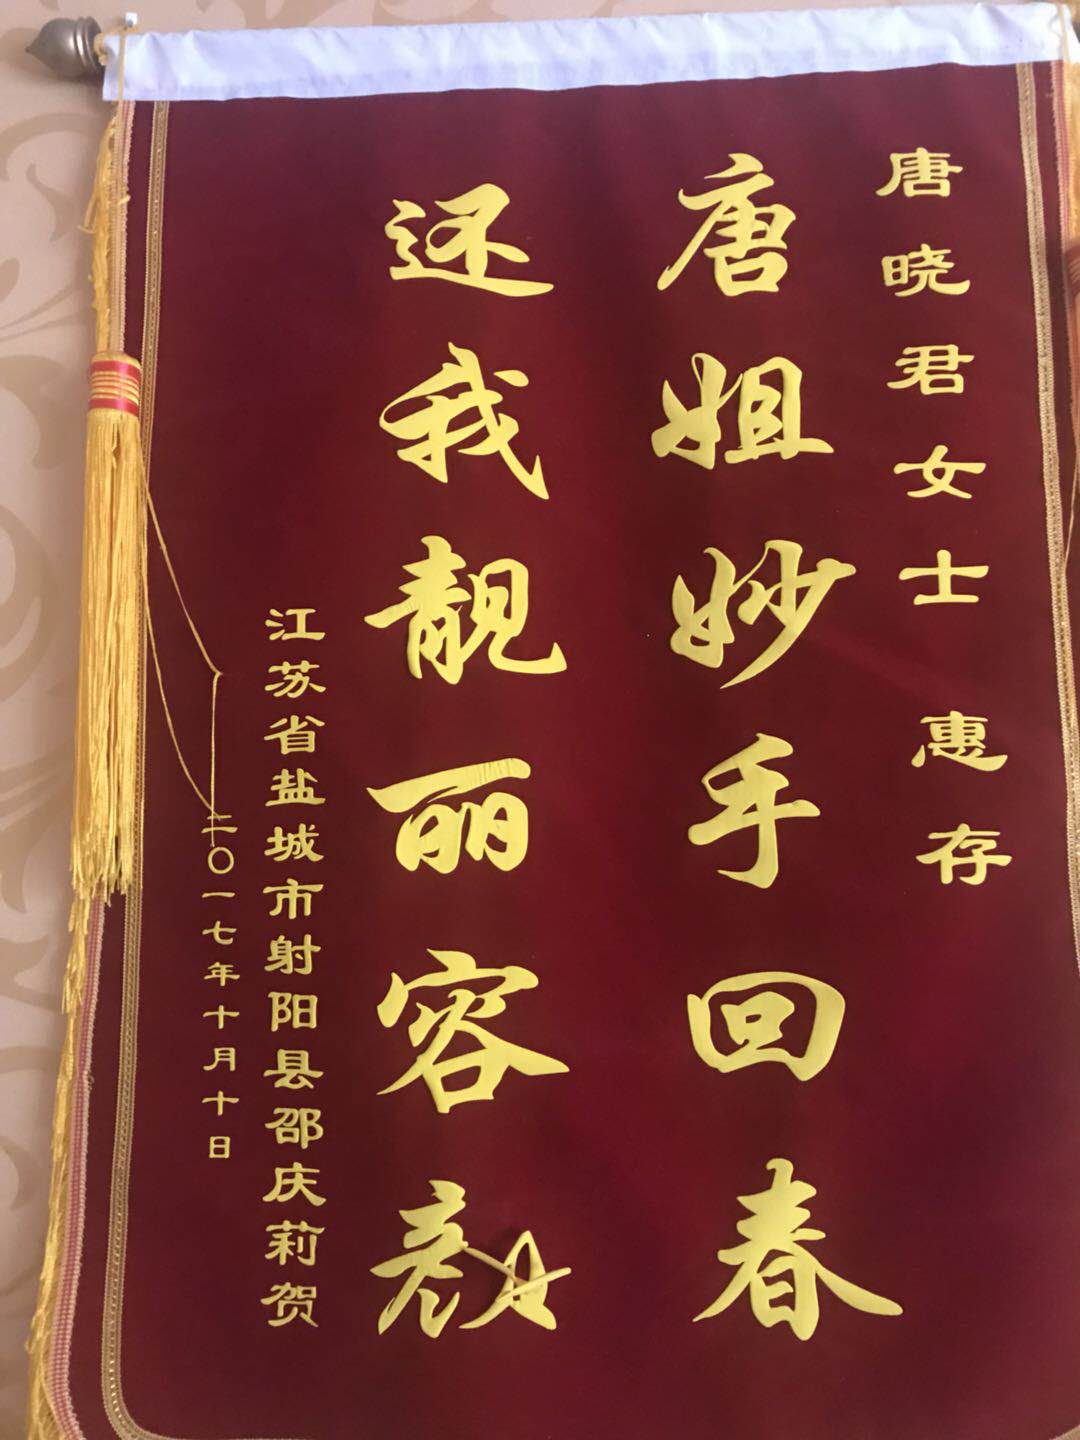 唐晓君女士 惠存
唐姐妙手回春
还我靓丽容颜
江苏省盐城市射阳县邵庆莉贺
二〇一七年十月十日